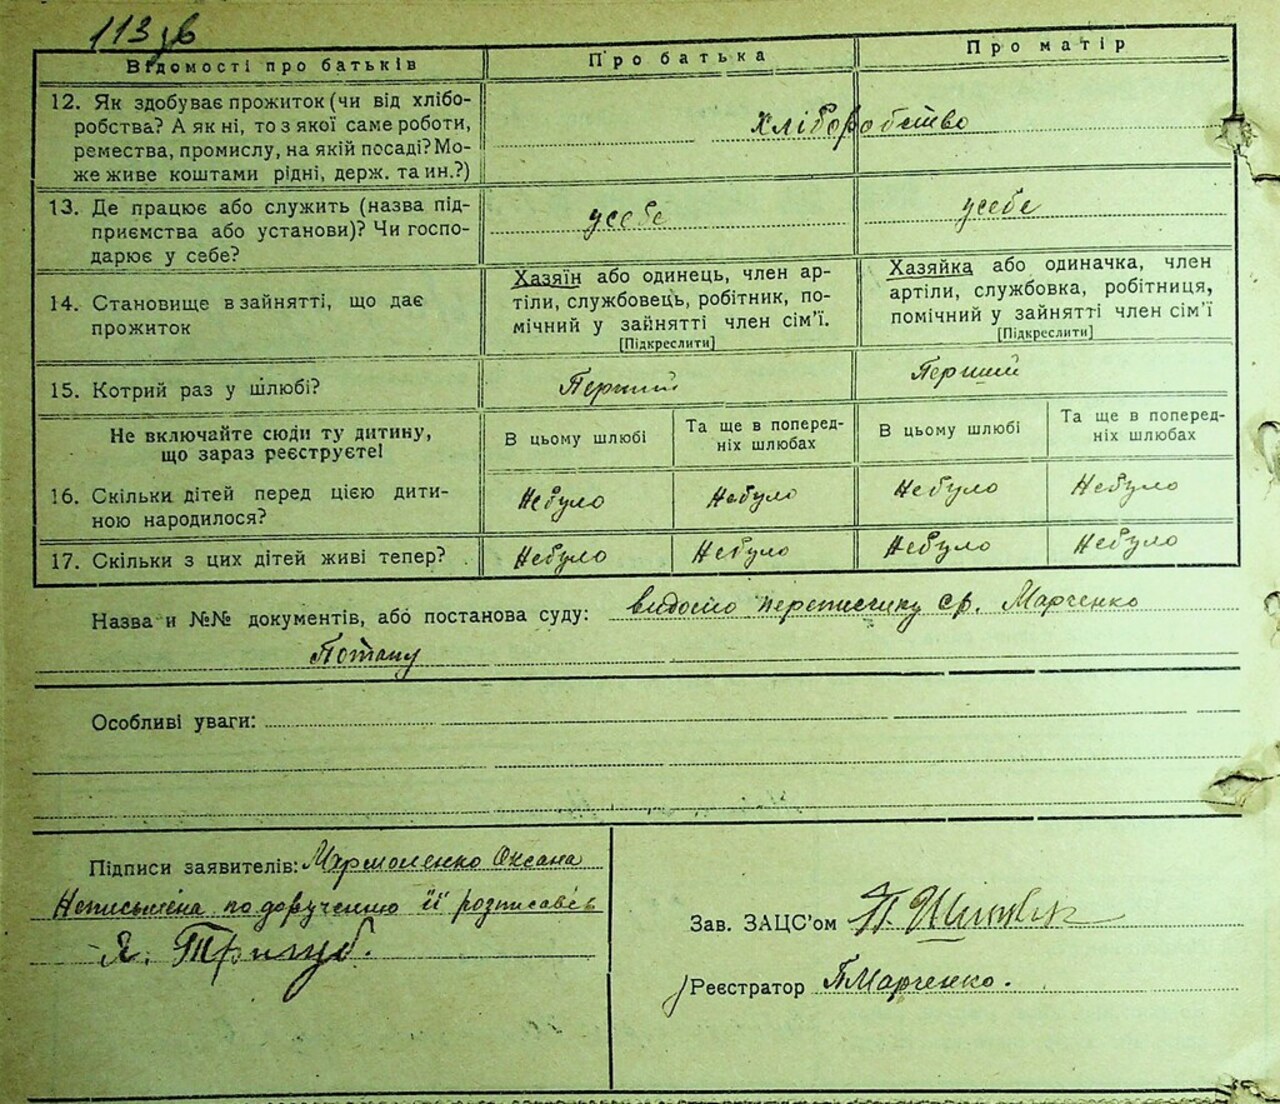 113 зв
Відомості про батьків
Про батька
Про матір
12. Як здобуває прожиток (чи від хлібо-
робства? А як ні, то з якої саме роботи,
ремества, промислу, на якій посаді? Мо-
же живе коштами рідні, держ. та ин.?)
хліборобство
13. Де працює або служить (назва під-
приємства або установи)? Чи госпо-
дарює у себе?
усебе
усебе
14. Становище в зайнятті, що дає
прожиток
Хазяїн або одинець, член ар-
тіли, службовець, робітник, по-
мічний у зайнятті член сім'ї.
[Підкреслити]
Хазяйка або одиначка, член
артіли, службовка, робітниця,
помічний у зайнятті член сім'ї
[Підкреслити]
15. Котрий раз у шлюбі?
Перший
Перший
Не включайте сюди ту дитину,
що зараз реєструєте!
В цьому шлюбі
Та ще в поперед-
ніх шлюбах
В цьому шлюбі
Та ще в поперед-
ніх шлюбах
16. Скільки дітей перед цією дити-
ною народилося?
Небуло
Небуло
Небуло
Небуло
17. Скільки з цих дітей живі тепер?
Небуло
Небуло
Небуло
Небуло
Назва и №№ документів, або постанова суду: видомо переписчику ср. Марченко
Потапу
Особливі уваги:
Підписи заявителів: Мармоленко Оксана
Неписьмена по дорученню її розписавсь
Я. Тризуб.
Зав. ЗАЦС'ом
Реєстратор ПМарченко.